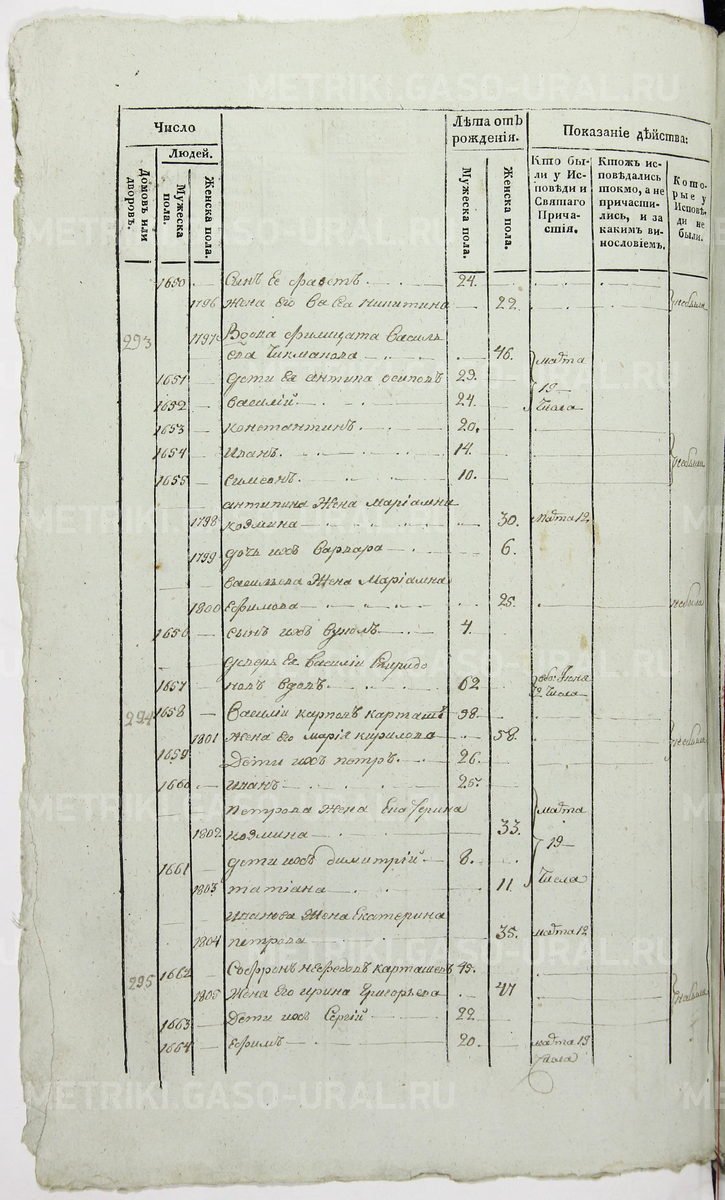 Число
Людей.
Домовъ или дворовъ.
Мужеска пола.
Женска пола.
Лѣта отъ рожденія.
Мужеска пола.
Женска пола.
Показаніе дѣйства:
Кто были у Исповѣди и Святаго Причастія.
Ктожъ исповѣдались токмо, а не причастились, и за какимъ винословіемъ.
Которые у Исповѣди не были.
1650 сынъ Ея 24.
1796 жена Его Васса никитина 22. небыли
293 1797 Вдова Филицата Василь
ева Чикманова 46. марта
1651 дети Ея антипа осиповъ 29.
19
1652 василій 24. числа
1653 константинъ 20.
1654 иванъ 14.
небыли
1655 симеонъ 10.
антипина жена Маріамна
1798 козмина 30. марта 12.
1799 дочь ихъ варвара 6.
васильева жена Маріамна
1800 Ефимова 25. небыла
1656 сынъ ихъ 4.
Ея василій спиридо
1657 новъ вдовъ 62. Июня
числа
294 1658 Василій карповъ карташевъ 58.
1801 жена Его Марія кирилова 58. небыли
1659 Дети ихъ петръ 26.
1660 иванъ 25.
петрова жена Екатерина марта
1802 козмина 33.
19
1661 дети ихъ димитрій 8.
1803 татіана 11. числа
иванова жена Екатерина
1804 петрова 35. марта 12
295 1662 Софронъ нефедовъ карташевъ 49.
1805 жена Его ирина григорьева 47 небыли
1663 Дети ихъ Сергій 22.
1664 Ефимъ 20. марта 19
числа
METRIKI.GASO-URAL.RU